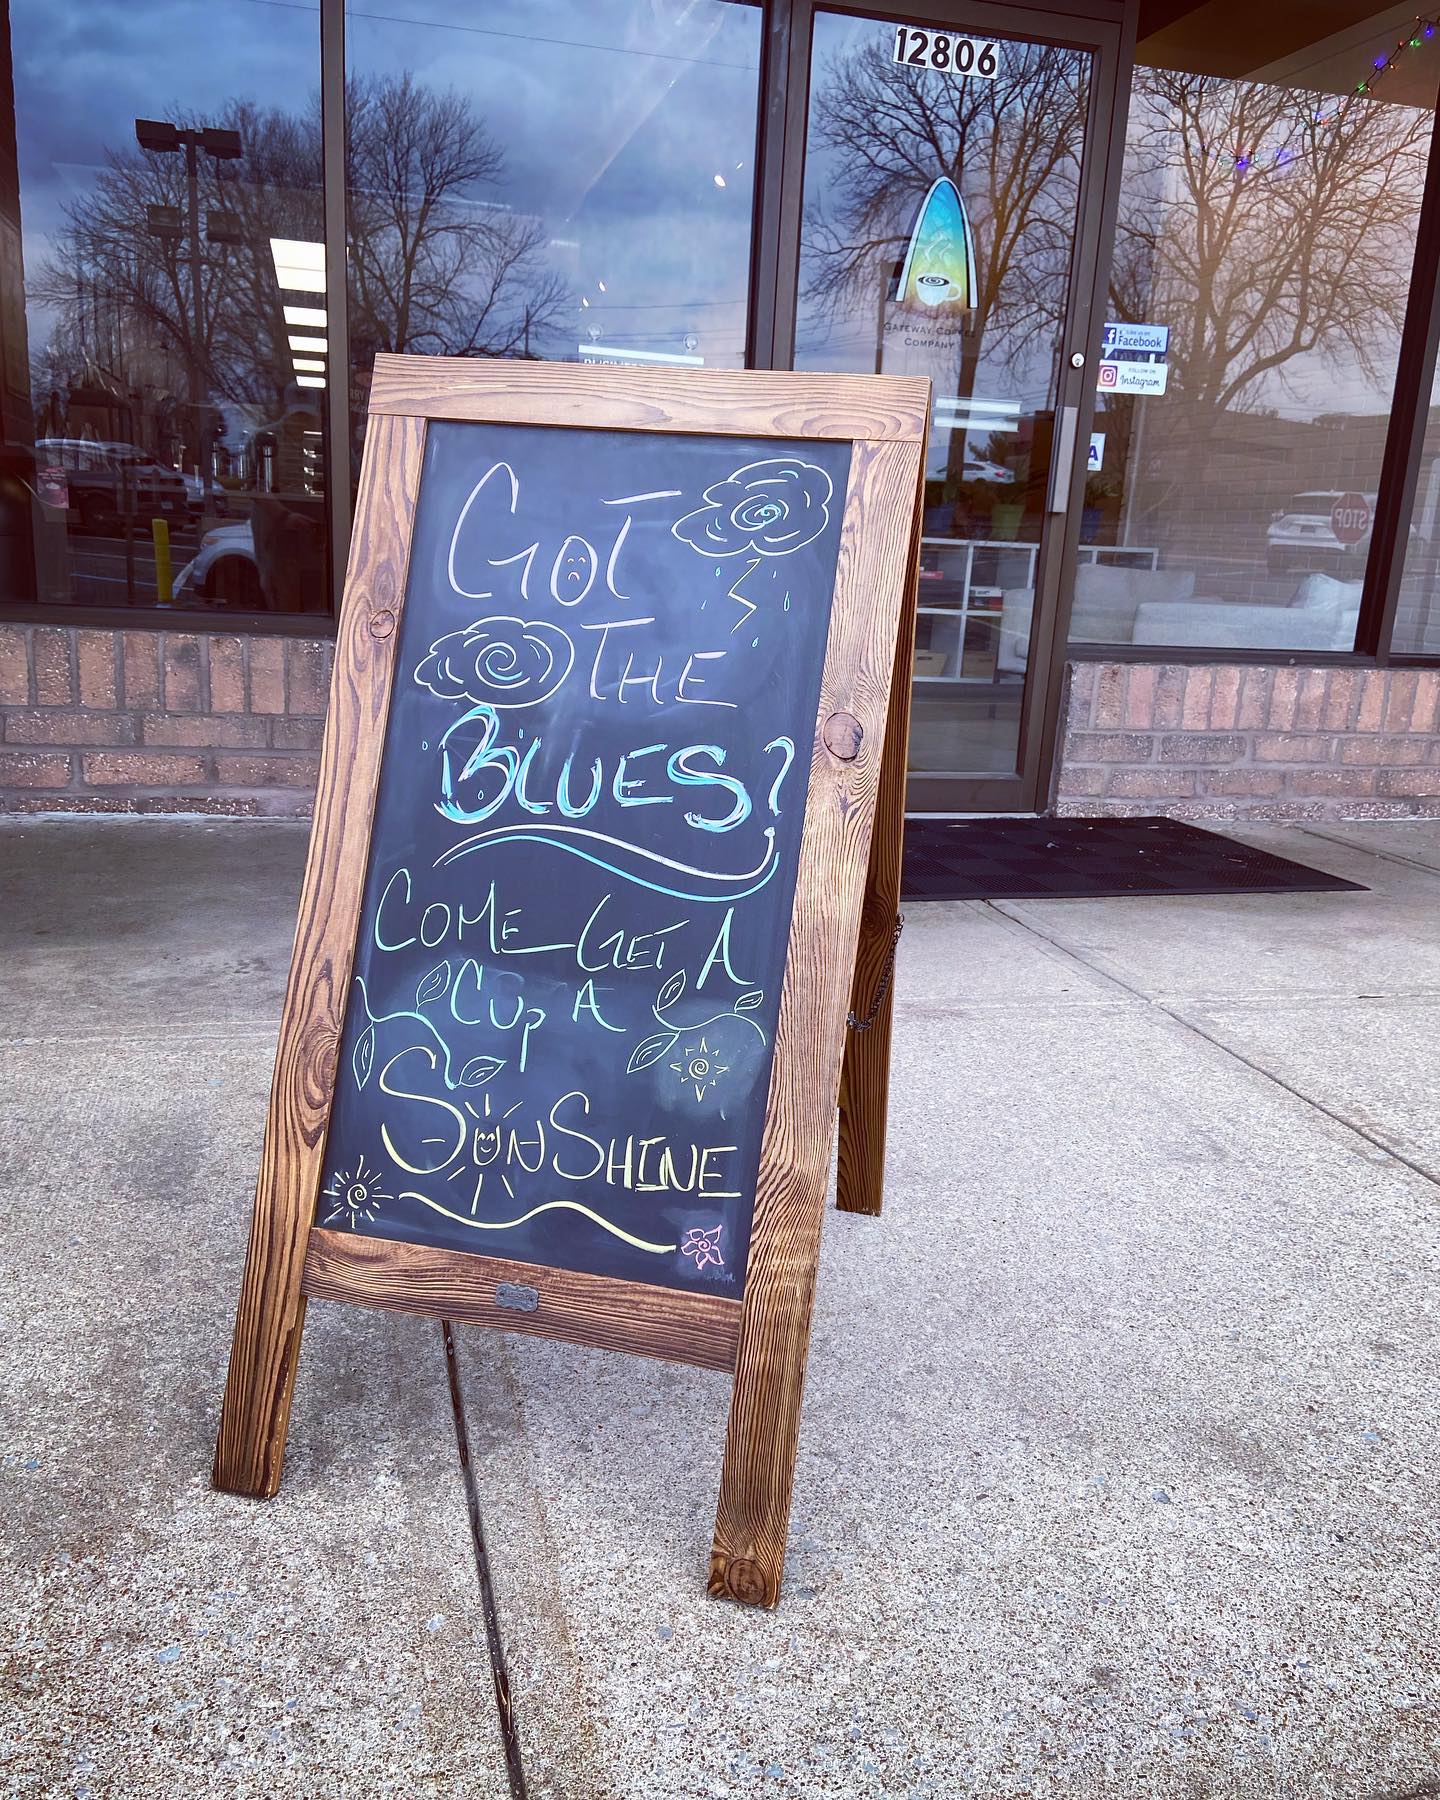 12806
GATEWAY COFFEE
COMPANY
LIKE US ON
Facebook
FOLLOW ON
Instagram
A
STOP
GOT
THE
BLUES?
COME GET A
CUP A
SUNSHINE